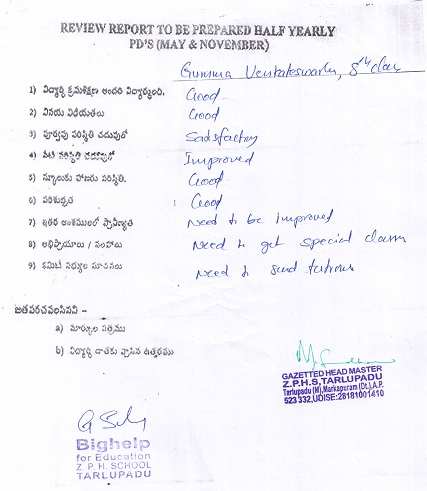 REVIEW REPORT TO BE PREPARED HALF YEARLY
PD'S (MAY & NOVEMBER)
Gunnna Venkateswarlu, 8th class
1) విద్యార్థి క్రమశిక్షణ అందరి విద్యార్థులంది. Good
2) వినయ విధేయతలు Good
3) పూర్వపు పరిస్థితి చదువులో Satisfactory
4) నేటి పరిస్థితి చదువులో Improved
5) స్కూలుకు హాజరు పరిస్థితి. Good
6) పరిశుభ్రత Good
7) ఇతర అంశములలో ప్రావీణ్యత Need to be improved
8) అభిప్రాయాలు / సలహాలు Need to get special classes
9) కమిటీ సభ్యుల సూచనలు Need to send tutions
జతపరచవలసినవి -
a) మార్కుల పత్రము
b) విద్యార్థి దాతకు వ్రాసిన ఉత్తరము
GAZETTED HEAD MASTER
Z.P.H.S, TARLUPADU
Tarlupadu (M), Markapuram (Dt.), A.P.
523 332, UDISE: 28181001410
Bighelp
for Education
Z. P. H. SCHOOL
TARLUPADU